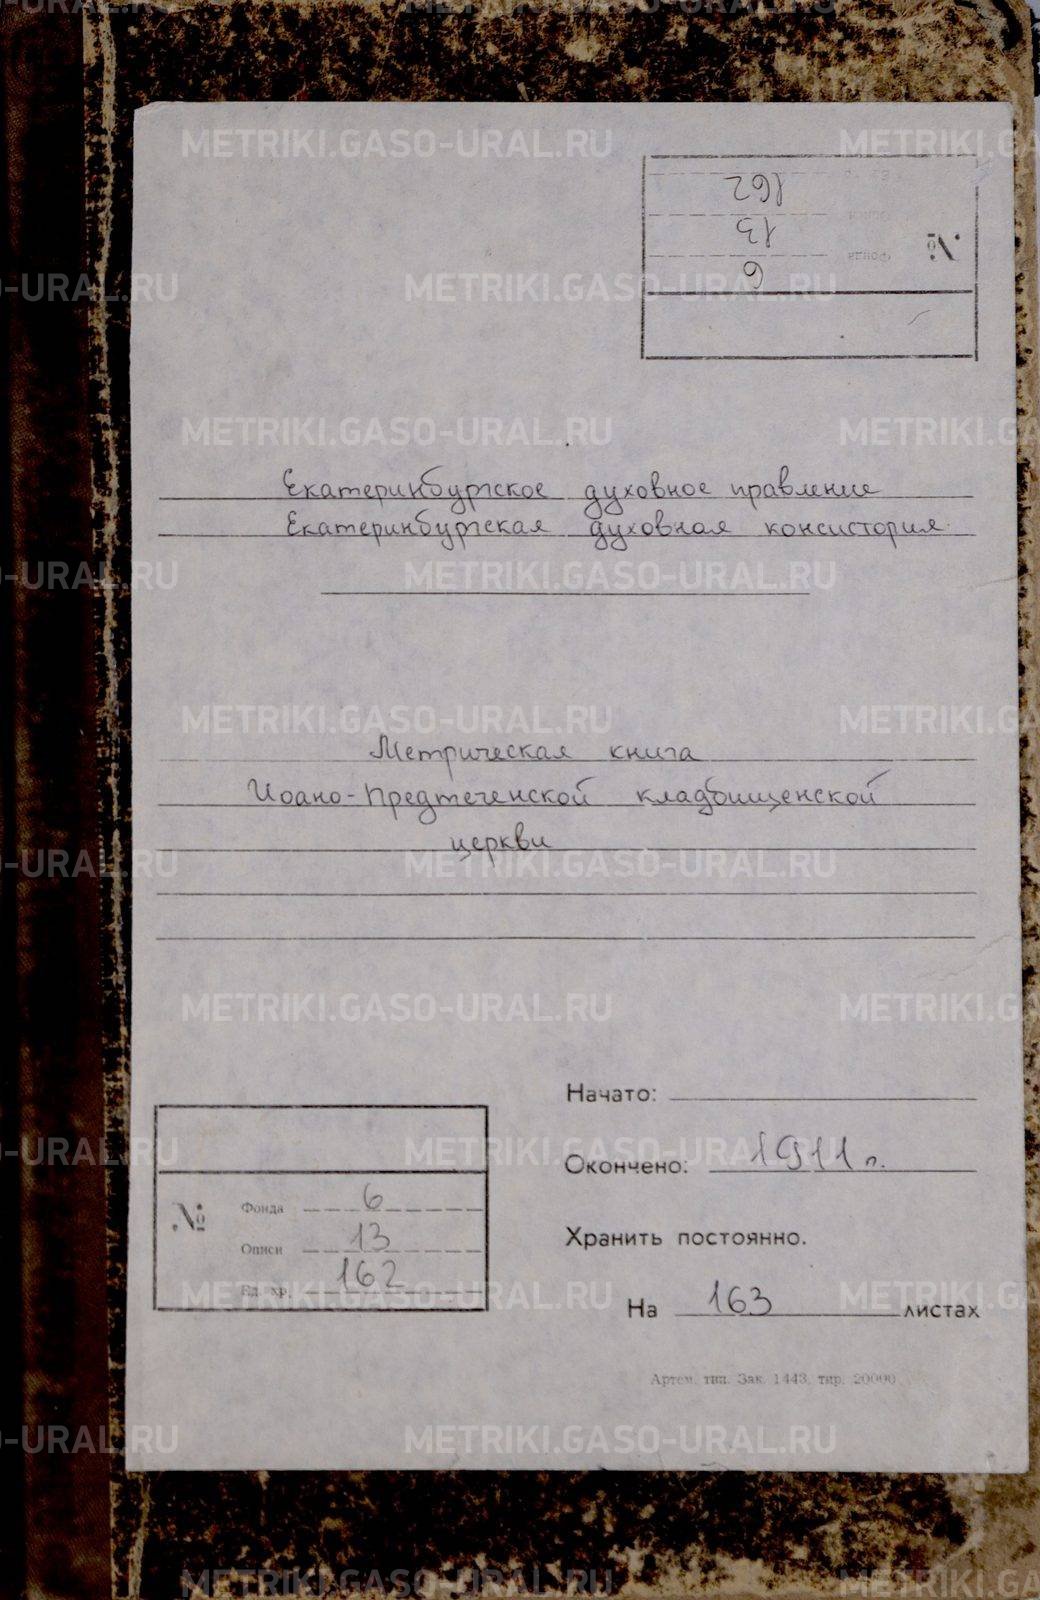 162
13
Фонда 6
№
Екатеринбургское духовное правление
Екатеринбургская духовная консистория
Метрическая книга
Иоано-Предтеченской кладбищенской
церкви
Начато:
Окончено: 1911 г.
Хранить постоянно.
На 163 листах
№
Фонда 6
Описи 13
Ед. хр. 162
Артем. тип. Зак. 1443, тир. 20000
METRIKI.GASO-URAL.RU